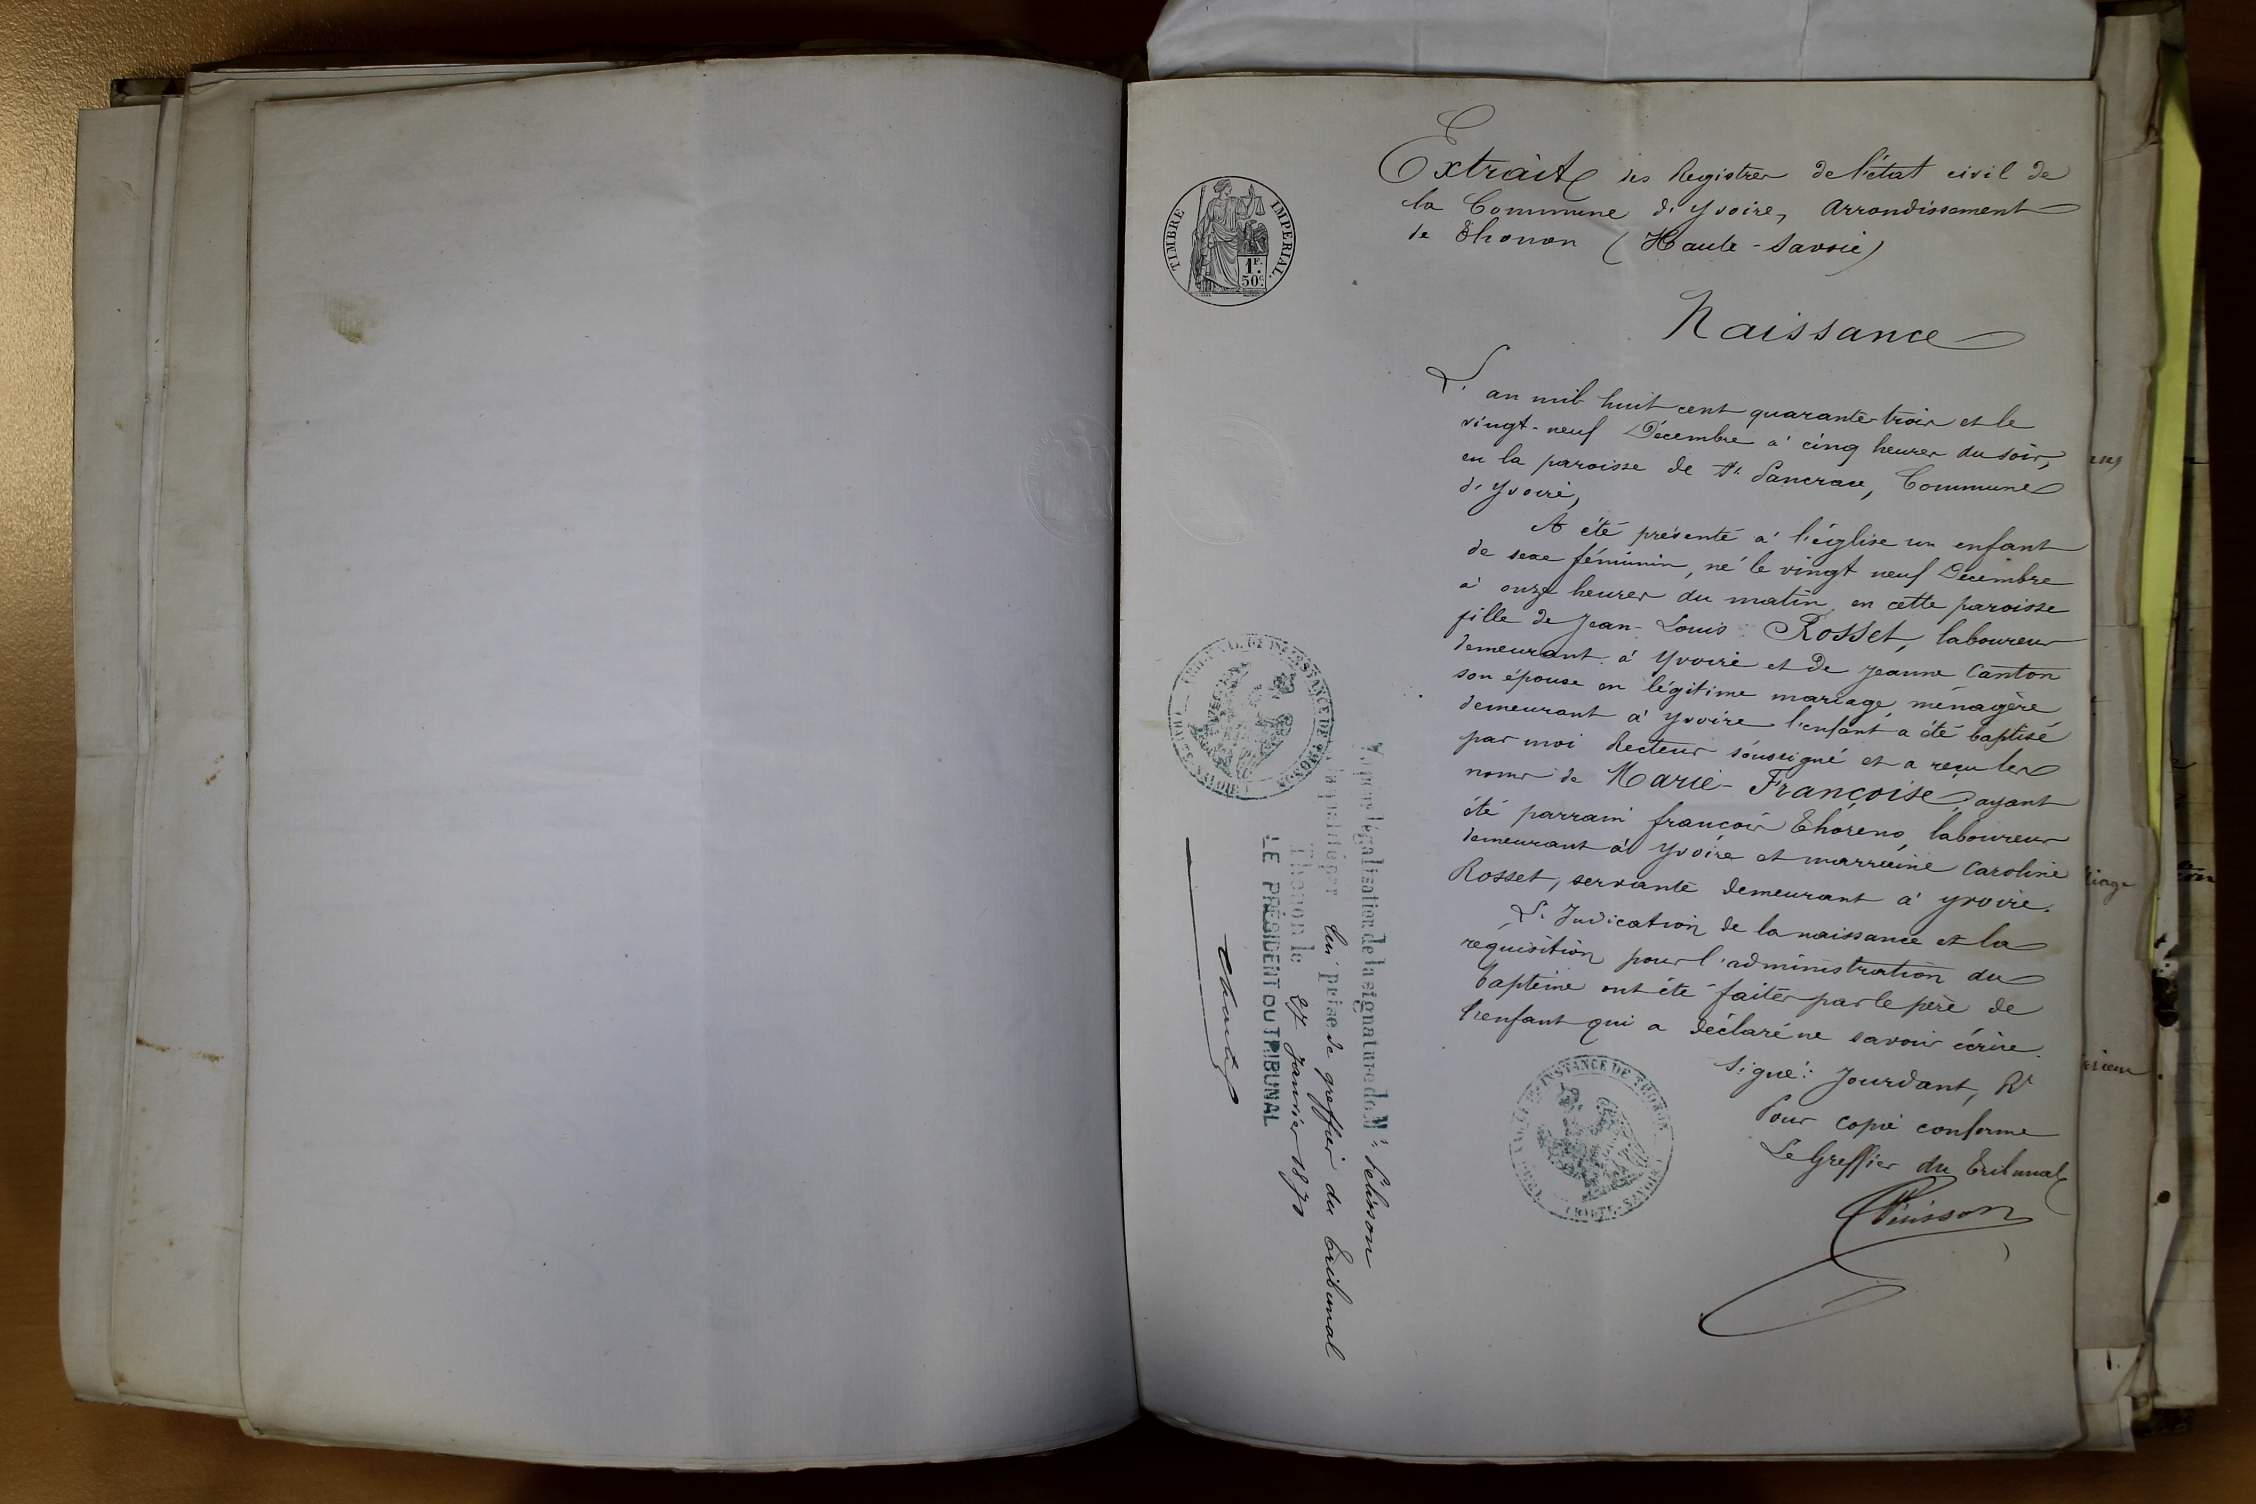 Extrait des Registres de l'état civil de
la Commune d'Yvoire, arrondissement
de Thonon (Haute-Savoie)
TIMBRE IMPERIAL.
1F.
50c.
Naissance
L'an mil huit cent quarante-trois et le
vingt-neuf Décembre à cinq heures du soir,
en la paroisse de St. Pancrace, Commune
d'Yvoire,
A été présenté à l'église un enfant
de sexe féminin, né le vingt neuf Décembre
à onze heures du matin, en cette paroisse
fille de Jean-Louis Rosset, laboureur
demeurant à Yvoire et de Jeanne Canton
son épouse en légitime mariage, ménagère
demeurant à Yvoire l'enfant a été baptisé
par moi Recteur soussigné et a reçu les
noms de Marie-Françoise, ayant
été parrain françois Thoreno, laboureur
demeurant à Yvoire et marraine Caroline
Rosset, servante demeurant à Yvoire.
L'Indication de la naissance et la
réquisition pour l'administration du
baptême ont été faites par le père de
l'enfant qui a déclaré ne savoir écrire.
Signé: Jourdant, Rr
Pour copie conforme
Le Greffier du Tribunal
TRIBUNAL DE 1re INSTANCE DE THONON
(HAUTE-SAVOIE)
légalisation de la signature de Mr.
prise de greffier du Tribunal
Thonon le 27 Janvier 187
LE PRÉSIDENT DU TRIBUNAL
TRIBUNAL DE 1re INSTANCE DE THONON
(HAUTE-SAVOIE)